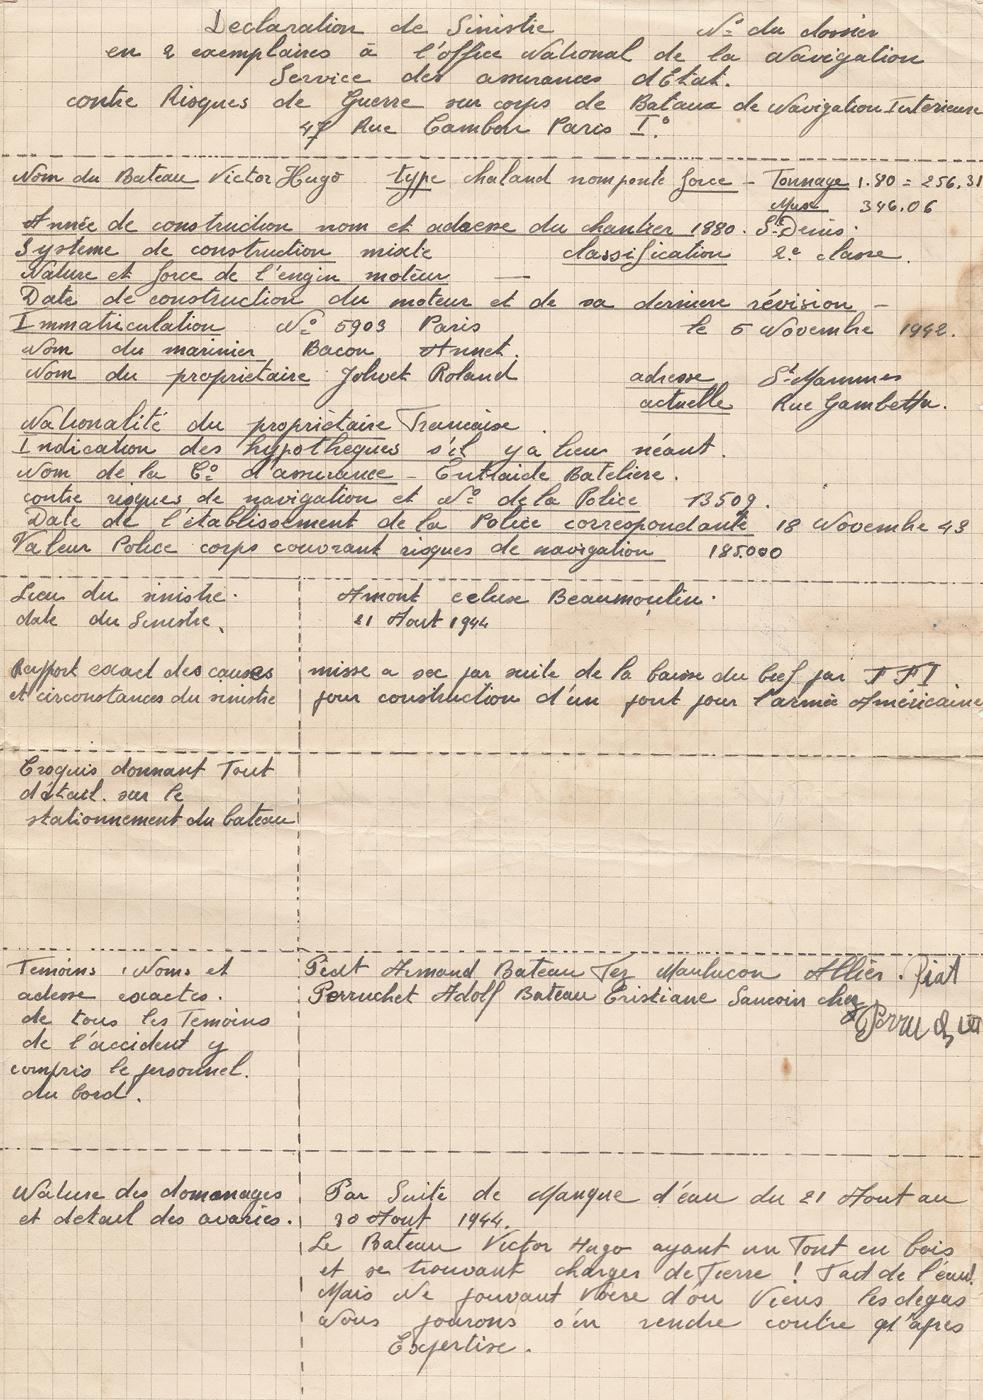 Declaration de Sinistre N° du dossier
en 2 exemplaires à l'office National de la Navigation
Service des assurances d'Etat.
contre Risques de Guerre sur corps de Bataux de Navigation Interieure
47 Rue Cambon Paris I.°
Nom du Bateau Victor Hugo type chaland nomponté force - Tonnage 1.80 = 256,31
Max 346.06
Année de construction nom et adresse du chantier 1880. St Denis.
Système de construction mixte classification 2e classe.
Nature et force de l'engin moteur —
Date de construction du moteur et de sa derniere révision -
Immatriculation N° 5903 Paris le 5 Novembre 1942.
Nom du marinier Bacon Annet.
Nom du propriétaire Jolivet Roland adresse St-Mammes
actuelle Rue Gambetta.
Nationalité du propriétaire Francaise.
Indication des hypothegues s'il y a lieu néant.
Nom de la Cie d'assurance - Entraide Bateliere.
contre risques de navigation et N° de la Police 13509.
Date de l'établissement de la Police correspondante 18 Novembre 43
Valeur Police corps couvrant risques de navigation 185.000
Lieu du sinistre. Amont ecluse Beaumoulin.
date du Sinistre, 21 Aout 1944
Rapport exact des causes misse a sec par suite de la baisse du bief par FFI.
et circonstances du sinistre pour construction d'un pont pour l'armée Américaine
Croquis donnant Tout
détail. sur le
stationnement du bateau
Temoins, Noms et Piat Armand Bateau Montlucon Allier. Piat
adresse exactes. Perruchet Adolf Bateau Cristiane Sancoin cher
de tous les Temoins Perruchet
de l'accident y
compris le personnel.
du bord.
Nature des domanages Par Suite de Manque d'eau du 21 Aout au
et detail des avaries. 30 Aout 1944.
Le Bateau Victor Hugo ayant un Font en bois
et se trouvant charger de Terre ! Fait de l'eau.
Mais Ne pouvant Voire d'ou Viens les degas
Nous pourons s'en rendre contre qu'apres
Expertise.